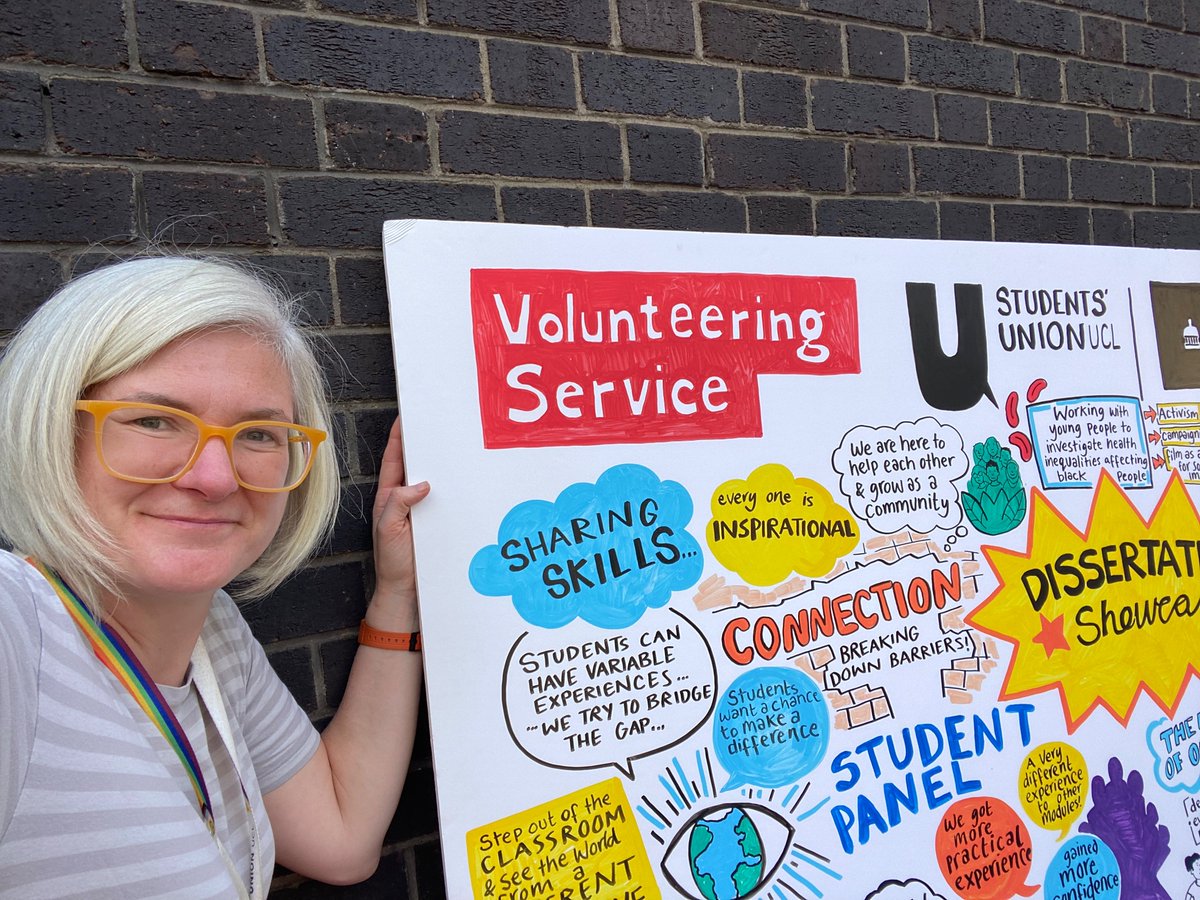 Volunteering
Service
U
STUDENTS'
UNION UCL
WORKING WITH
YOUNG PEOPLE TO
INVESTIGATE HEALTH
INEQUALITIES AFFECTING
BLACK PEOPLE
Activism
campaign
film as a
We are here to
help each other
& grow as a
community
every one is
INSPIRATIONAL
SHARING
SKILLS...
CONNECTION
BREAKING
DOWN BARRIERS!
DISSERTATI
Showca
STUDENTS CAN
HAVE VARIABLE
EXPERIENCES...
...WE TRY TO BRIDGE
THE GAP...
Students
want a chance
to make a
difference
STUDENT
PANEL
A very
different
experience
to other
modules!
We got
more
practical
experience
gained
more
confidence
THE
OF O
Step out of the
CLASSROOM
& see the world
from a
ERENT
UNION